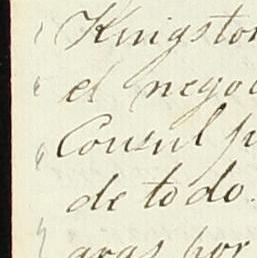 Kingston
el nego
Consul p
de todo.
aras por